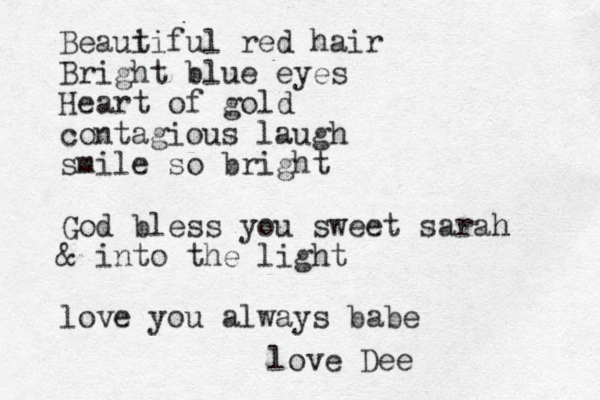 Beautiful red hair
Bright blue eyes
Heart of gold
contagious laugh
smile so bright
God bless you sweet sarah
& into the light
love you always babe
love Dee